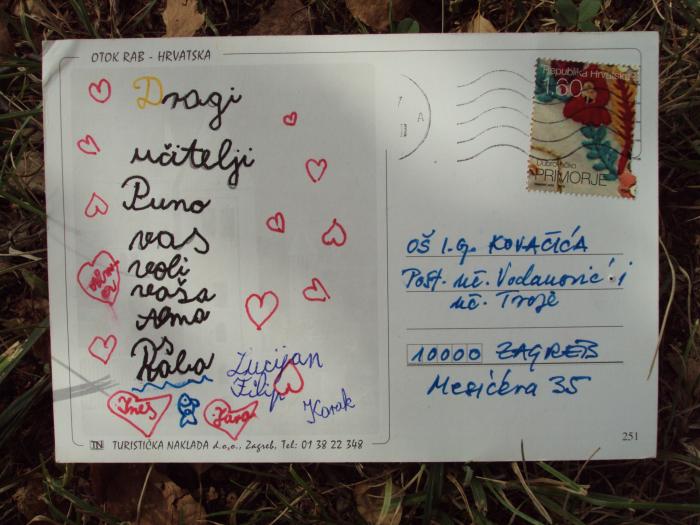 OTOK RAB - HRVATSKA
Dragi
učitelji
Puno
vas
voli
vaša
Alma
s
Raba
Lucijan
Filip
Karak
Ines
Jara
IN TURISTIČKA NAKLADA d.o.o., Zagreb, Tel: 01 38 22 348
Republika Hrvatska
1.60
Dubrovačko
PRIMORJE
OŠ I. G. KOVAČIĆA
Pošt. uč. Vodanović i
uč. Troje
10000 ZAGREB
Mesićeva 35
251